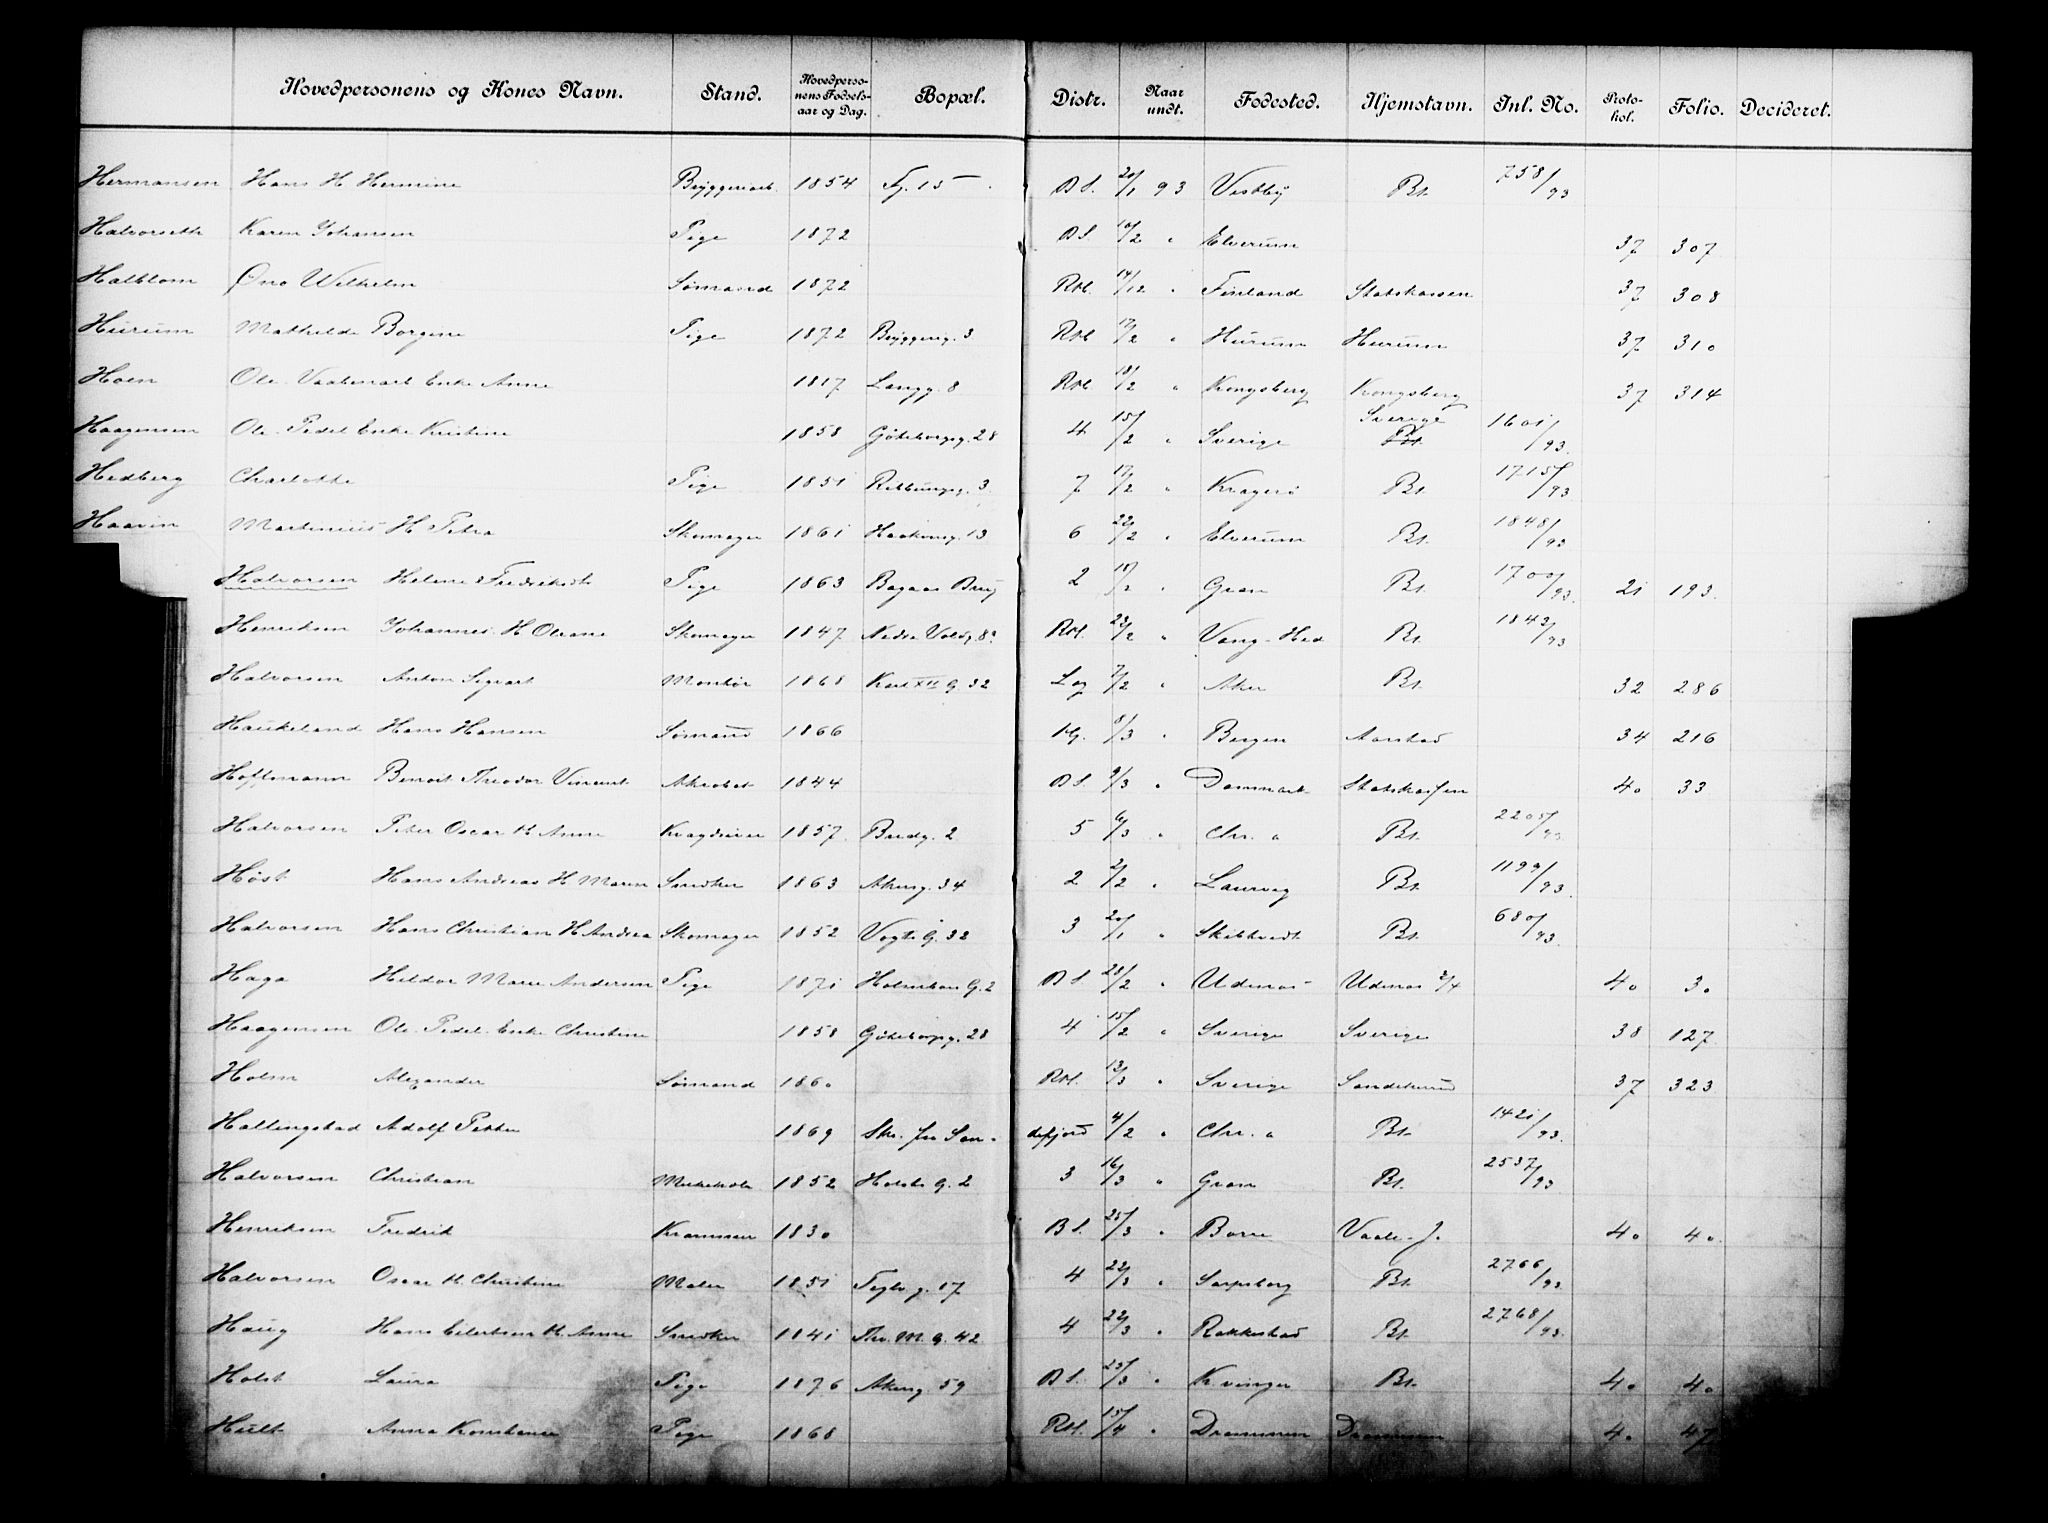 Hovedpersonens og Kones Navn. Stand. Hovedperso-nens Fødsels-aar og Dag. Bopæl. Distr. Naar undt. Fødested. Hjemstavn. Inl. No. Proto-kol. Folio. Decideret.
Hermansen Hans H Hermine Bryggeriarb. 1854 15 B S. 20/1 93 Vestby Bt. 758/93
Halvorseth Karen Johansen Pige 1872 B S. 10/2 " Elverum 37 307
Halblom Wilhelm Sømand 1872 Rst. 14/12 " Finland Statskassen 37 308
Hurum Mathilde Borgine Pige 1872 Bryggerig. 3 Rst. 17/2 " Hurum Hurum 37 310
Hoen Ole Enke Anne 1817 Langg. 8 Rst. 18/2 " Kongsberg Kongsberg 37 314
Haagensen Ole Pedel Enke Kristine 1858 Göteborgg. 28 4 15/2 " Sverige Sverige Bt. 1601/93
Hedberg Charlotte Pige 1851 3 7 17/2 " Kragerø Bt. 1715/93
Haavin Martinius H Petra Skomager 1861 Haakonsg. 13 6 22/2 " Elverum Bt. 1848/93
Halvorsen Helene Fredrikke Pige 1863 2 18/2 " Gran Bt. 1700/93 21 193
Henriksen Johannes H Oleane Skomager 1847 Nedre Voldg. 8 Rst. 23/2 " Vang Hed Bt. 1843/93
Halvorsen Anton Sigvart Montør 1868 Karl XII G. 32 Log 7/2 " Aker Bt. 32 286
Haukeland Hans Hansen Sømand 1866 8/3 " Bergen Aarstad 34 216
Hoffmann Benoit Theodor Vincent Akrobat 1844 B S. 9/3 " Danmark Statskassen 40 33
Halvorsen Peter Oscar H Anna 1857 Bredg. 2 5 6/3 " Chr. a Bt. 2205/93
Høst Hans Andreas H Maren Snedker 1863 Akersg. 34 2 2/2 " Laurvig Bt. 1199/93
Halvorsen Hans Christian H Andrea Skomager 1852 Vogts G. 32 3 20/1 " Skibtvedt Bt. 680/93
Haga Hilda Marie Andersen Pige 1871 G. 2 B S. 23/2 " Udenes Udenes 2/4 40 30
Haagensen Ole Pedel Enke Christine 1858 Göteborgg. 28 4 15/2 " Sverige Sverige 38 127
Holm Alexander Sømand 1860 Rst. 13/3 " Sverige 37 323
Hallingstad Adolf Petter 1869 Skr. fra San- defjord 4/2 " Chr. a Bt. 1421/93
Halvorsen Christian 1852 Holsts G. 2 3 16/3 " Gran Bt. 2537/93
Henriksen Fredrik Kræmmer 1830 B S. 25/3 " Borre Vaale J. 40 40
Halvorsen Oscar H. Christine Maler 1851 17 4 22/3 " Sarpsborg Bt. 2766/93
Haug Hans Eilertsen H. Anne Snedker 1841 Thv. M. G. 42 4 22/3 " Rakkestad Bt. 2768/93
Holst Laura Pige 1876 Akersg. 59 B S. 23/3 " Kvinger Bt. 40 40
Hult Anna Konstance Pige 1868 Rst. 15/4 " Drammen Drammen 40 47